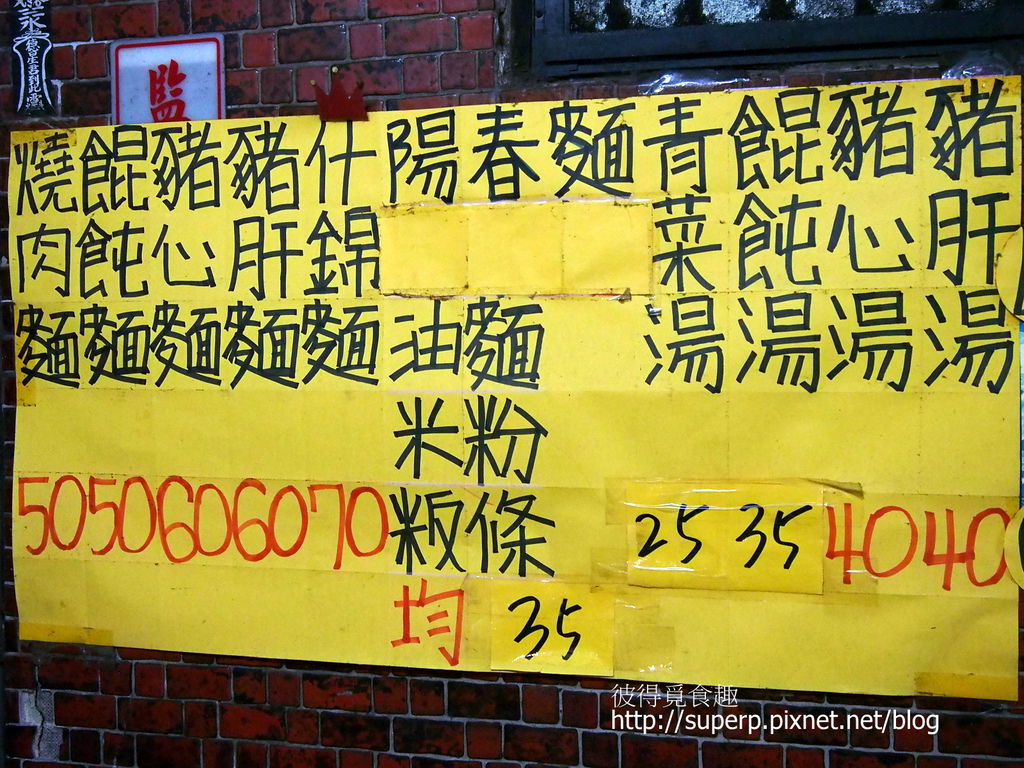 監
燒肉麵 50
餛飩麵 50
豬心麵 60
豬肝麵 60
什錦麵 70
陽春麵
油麵
米粉
粄條
均 35
青菜湯 25
餛飩湯 35
豬心湯 40
豬肝湯 40
彼得覓食趣
http://superp.pixnet.net/blog